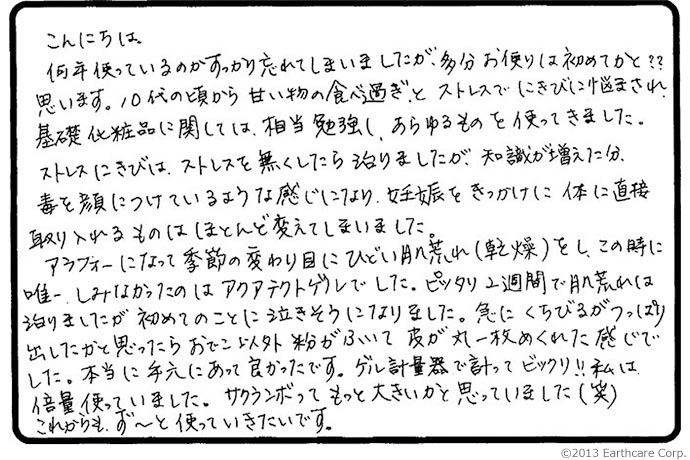 こんにちは。
何年使っているのかすっかり忘れてしまいましたが、多分お便りは初めてかと??
思います。10代の頃から甘い物の食べ過ぎ、とストレスでにきびに悩まされ、
基礎化粧品に関しては、相当勉強し、あらゆるものを使ってきました。
ストレスにきびは、ストレスを無くしたら治りましたが、知識が増えた分、
毒を顔につけているような感じになり、妊娠をきっかけに体に直接
取り入れるものはほとんど変えてしまいました。
アラフォーになって季節の変わり目にひどい肌荒れ(乾燥)をし、この時に
唯一、しみなかったのはアクアテクトゲルでした。ピッタリ2週間で肌荒れは
治りましたが初めてのことに泣きそうになりました。急にくちびるがつっぱり
出したかと思ったらおでこ以外粉がふいて皮が丸一枚めくれた感じで
した。本当に手元にあって良かったです。ゲル計量器で計ってビックリ!!私は、
倍量使っていました。サクランボってもっと大きいかと思っていました(笑)
これからも、ず〜と使っていきたいです。
©2013 Earthcare Corp.